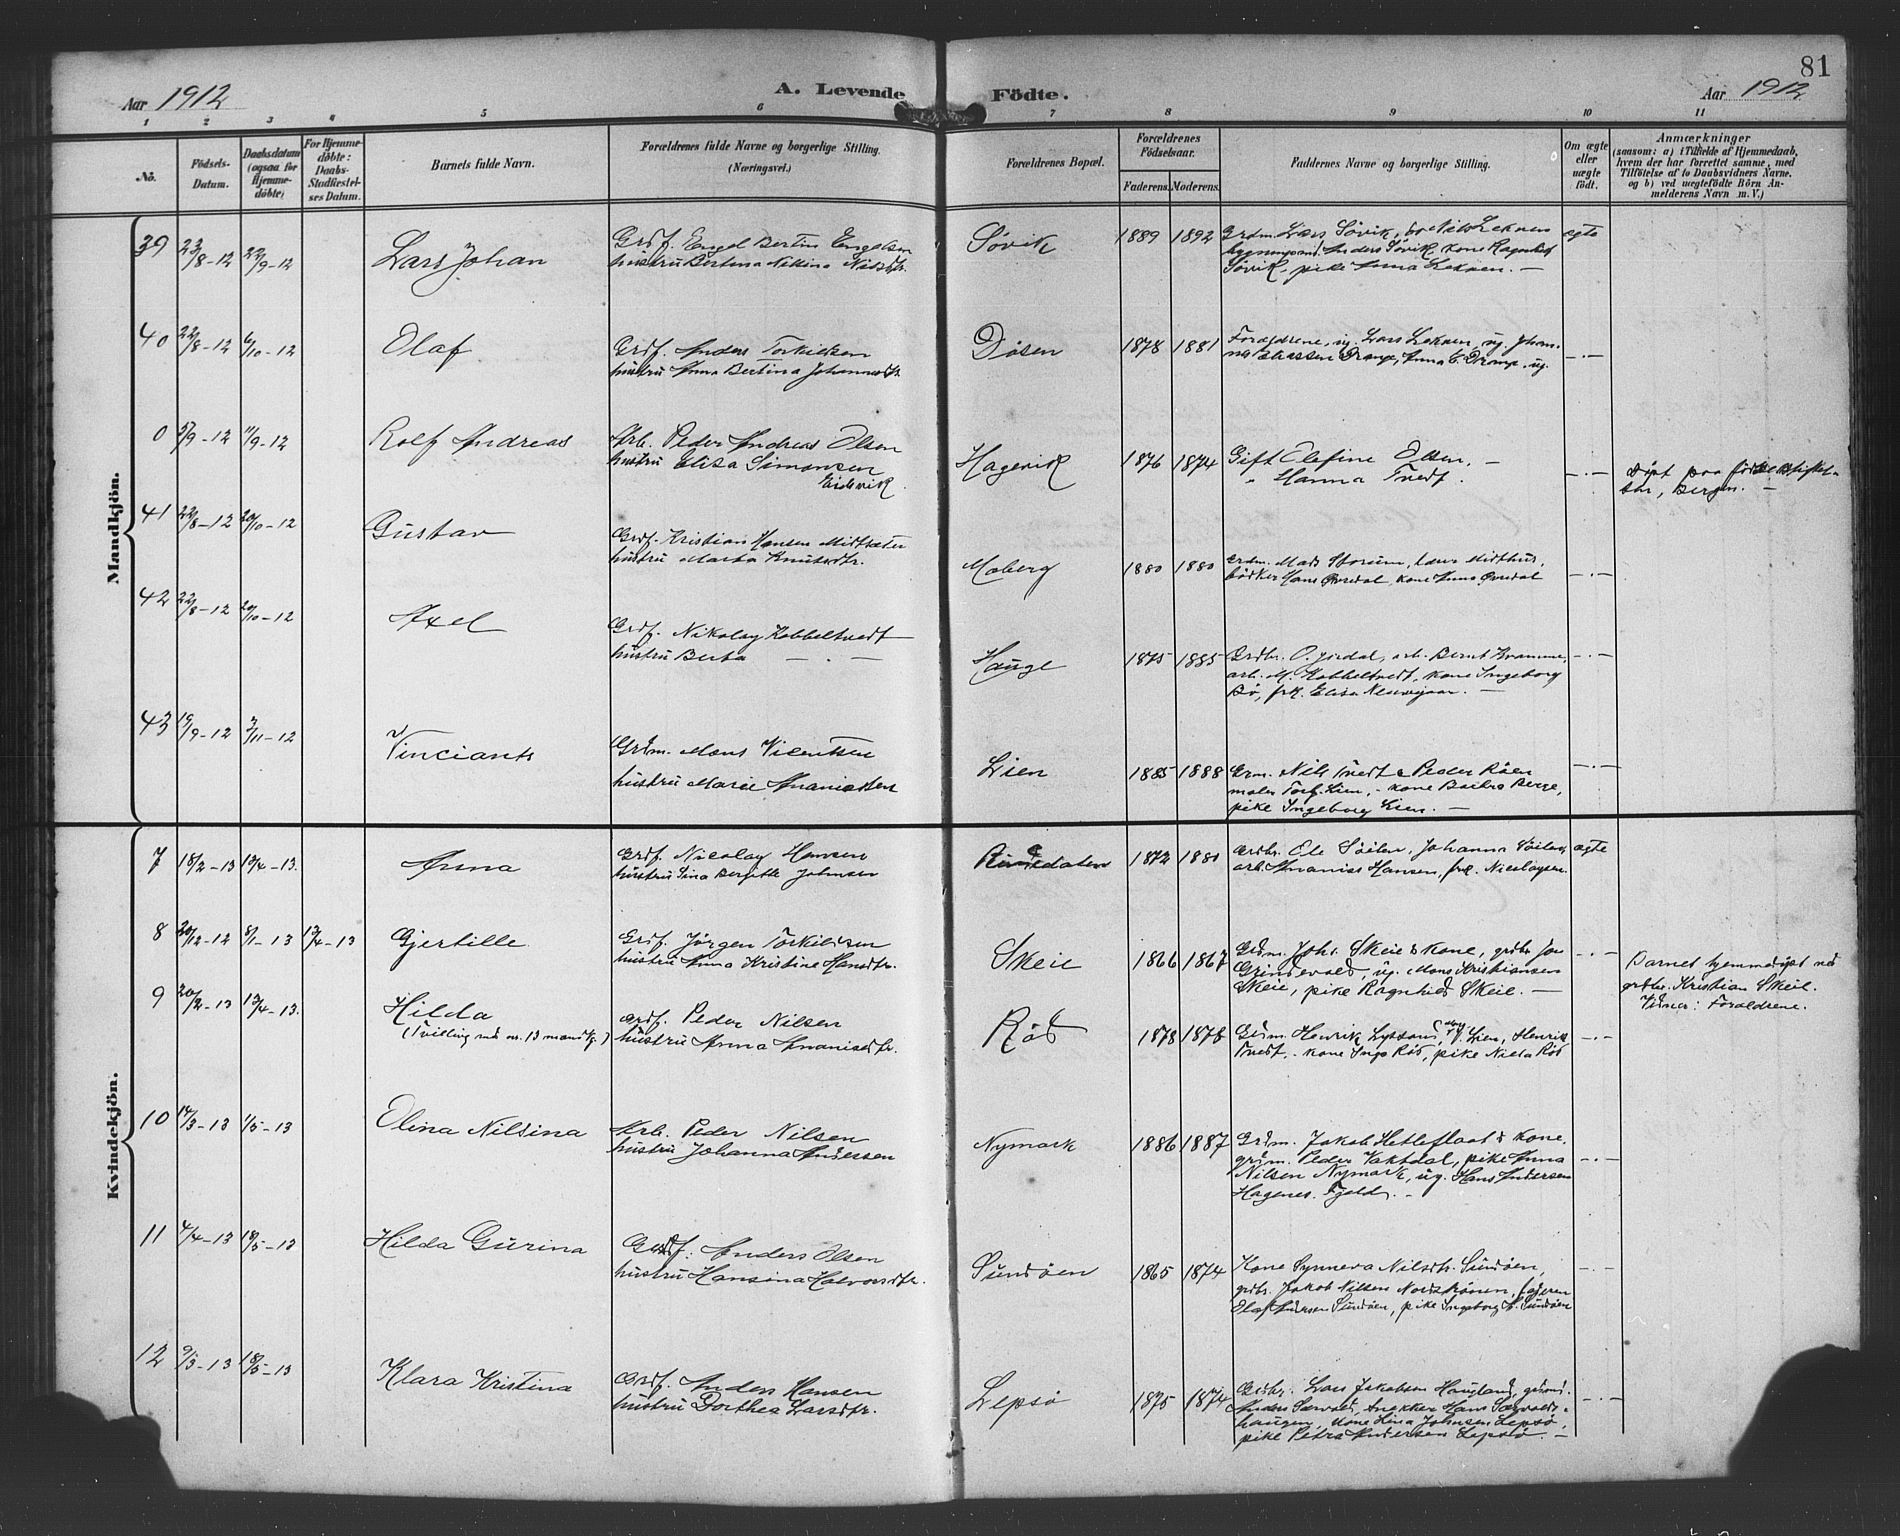 81
Aar 1912
A. Levende Födte.
Aar 1912
1 2 3 4 5 6 7 8 9 10 11
No.
Födsels-Datum.
Daabsdatum (ogsaa for Hjemmedöbte)
For Hjemmedöbte: Daabs-Stadfæstelses Datum.
Barnets fulde Navn.
Forældrenes fulde Navne og borgerlige Stilling.
(Næringsvei.)
Forældrenes Bopæl.
Forældrenes Födselsaar.
Faderens. Moderens.
Faddernes Navne og borgerlige Stilling.
Om ægte eller uægte födt.
Anmærkninger
(saasom: a) i Tilfælde af Hjemmedaab,
hvem der har forrettet samme, med
Tilföielse af to Daabsvidners Navne.
og b) ved uægtefödte Börn An-
melderens Navn m. V.)
Mandkjön.
39 23/8-12 22/9-12 Lars Johan
Grdf. Engel Bertin Engelsen
hustru Bertina Nilsdtr.
Søvik 1889 1892
Grdm. Lars Søvik, Nils Leknen
Anders Søvik, kone Ragnhild
Søvik, pike Anna Leknen. —
ægte
40 22/8-12 6/10-12 Olaf
Grdf. Anders Torkildsen
hustru Anna Bertina Johannesdtr.
Døsen 1878 1881
Forældrene, ug. Lars Leknen, ug. Johan-
Drange, Anna E. Drange, ug.
—·—
0 5/9-12 11/9-12 Rolf Andreas
Arb. Peder Andreas Olsen
hustru Elisa Simonsen
Eidsvik.
Hagevik 1876 1874
Gift Olefine Olsen, —
" Hanna Tvedt.
—·—
Døpt paa fødselsstiftel-
sen, Bergen. —
41 22/8-12 20/10-12 Gustav
Grdf. Kristian Hansen Midtsæter
hustru Marta Knutsdtr.
Moberg 1880 1880
Grdm. Mads Midthus,
bødker Hans Øvredal, kone Anna Øvredal
—·—
42 22/8-12 20/10-12 Axel
Grdf. Nikolay Kobbeltvedt
hustru Berta — · —
Hauge 1875 1885
Grdbr. O. Jordal, arb. Bernt
arb. M. Kobbeltvedt, kone Ingeborg
Bø, frk. Elisa —
—·—
43 19/9-12 3/11-12 Vinciants
Grdm. Mons Vicentsen
hustru Marie Ananiasen
Lien 1885 1888
Grm. Nils Tvedt & Peder Røen
maler Torf. Lien, kone Barbro Berge,
pike Ingeborg Lien. —
—·—
Kvindekjön.
7 18/2-13 13/4-13. Anna
Grdf. Nicolay Hansen
hustru Sina Bergitte Johnsen
1872 1880
Grdbr. Ole Søilen, Johanna Søilen,
arb. Ananias Hansen, frk. Nicolaysen.
ægte
8 20/12-12 8/1-13 13/4-13 Gjertille
Grdf. Jørgen Torkildsen
hustru Anna Kristine Hansdtr.
Skeie 1866 1867
Grdm. Johs. Skeie & kone, grdbr.
Grindevold, ug. Mons Kristiansen
Skeie, pike Ragnhild Skeie. —
—·—
Barnet hjemmedøpt ved
grdbr. Kristian Skeie.
Vidner: Forældrene.
9 20/2-13 13/4-13. Hilda
(Tvilling med nr. 13 mandkj.)
Grdf. Peder Nilsen
hustru Anna Ananiasdtr.
Rød 1878 1878
Grdm. Henrik Lien, Henrik
Tvedt, kone Inga Rød, pike Nicla Rød
—·—
10 14/3-13 1/5-13 Olina Nilsina
Arb. Peder Nilsen
hustru Johanna Andersen
Nymark 1886 1887
Grdm. Jakob Hetleflaat & kone,
grdm. Peder Vaktdal, pike Anna
Nilsen Nymark, ug. Hans Andersen
Hagenes. Fjeld. —
—·—
11 4/4-13 18/5-13 Hilda Gurina
Grdf. Anders Olsen
hustru Hansina Halvorsdtr.
Sundøen 1865 1874
Kone Synneva Nilsdtr. Sundøen,
grdbr. Jakob Nilsen Nordstrønen, faderen
Olaf Andersen Sundøen, pike Ingeborg A. Sundøen
—·—
12 9/3-13 18/5-13 Klara Kristina
Grdf. Anders Hansen
hustru Dorthea Larsdtr.
Lepsø 1875 1874
Grdbr. Lars Jakobsen Haugland,
Anders Særvold, snekker Hans Særvold-
haugen, kone Lina Johnsen Lepsø,
pike Petra Andersen Lepsø. —
—·—